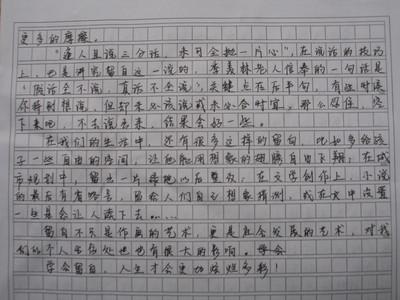 更多的摩擦。
"逢人且说三分话,未可全抛一片心",在说话的技巧
上,也是讲究留白这一说的,季羡林先人信奉的一句话是
"假话全不说,真话不全说",关键点在后半句,有些时候
你特别想说,但却未必该说或未必合时宜,那么停住,咽
下来吧,不去说出来,结果会好一些。
在我们的生活中,还有很多这样的留白,比如多给孩
子一些自由的空间,让他能用想象的翅膀自由飞翔;在城
市规划中,留出一片绿地以后整改;在文学创作上,小说
的最后有省略号,留给人们自己想象猜测,我在文中设置
一些悬念让人读下去……
留白不只是作画的艺术,更是社会发展的艺术,对我
们的个人生活处也也有很大的影响。
学会留白,人生才会更加炫烂多彩!